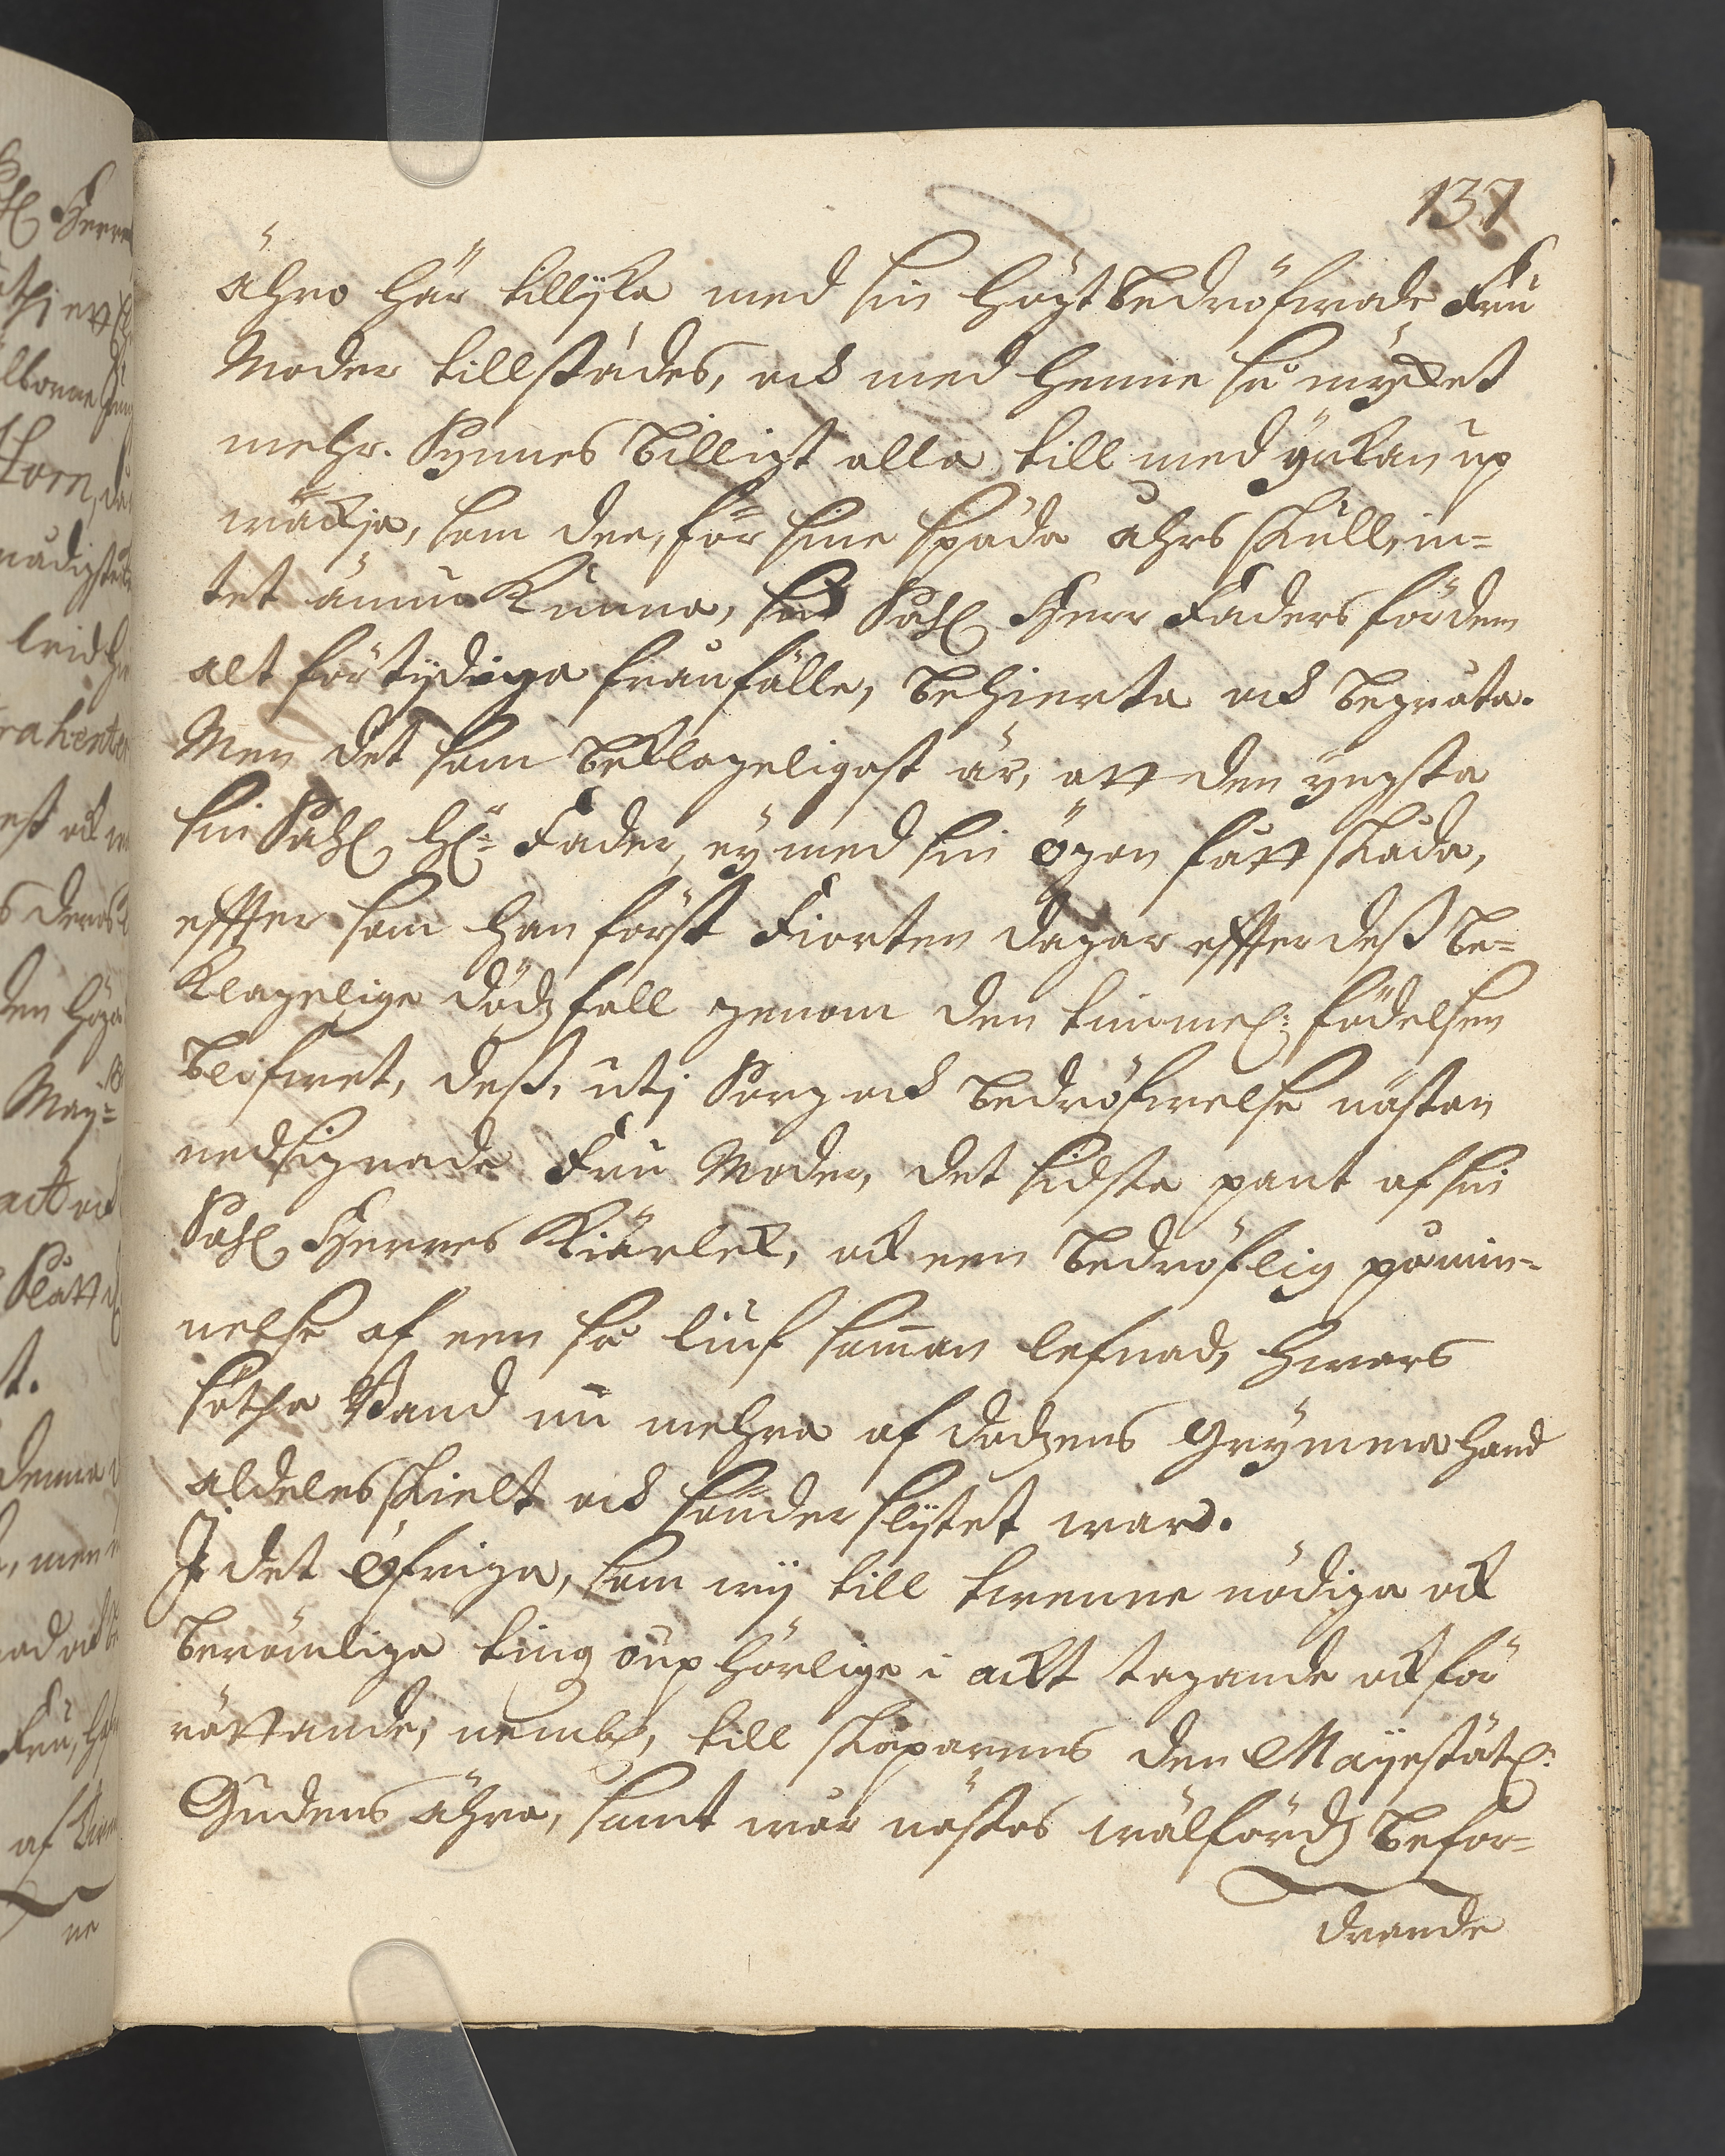 137
ähro här tillijka med sin högtbedröfwade Fru
Moder tillstädes, och med henne så mycket
mehr. Synnes billigt alla till medynkan up
wäckja, som dee, för sine späda åhrs skull, in-
tet ännu kunna, sin Sahl Herr Faders för dem
alt förtijdiga frånfälle, behierta och begråta.
Men det som beklageligast är, att den yngsta
sin Sahl Hr: Fader, ey med sin ögon fått skåda,
effter som han först Fiorten dagar effter dess be-
klagelige dödzfall genom den timmel: födelsen
blifwet, dess, utj Sorg och bedröfwelse nästan
nedsignade Fru Moder, det sidsta pant af sin
Sahl Herres Kiärlek, och een bedröflig påmin-
nelse af een så liuf samman lefnad, hwars
sötha Band nu mehra af dödzens grymma hand
aldeles skielt och sönder slijtet ward.
I det öfriga, som wij till twenne nödiga och
berömliga ting oup hörlige i ackt tagande och för
rättande, nembl, till skaparens den Mayestätl:
Gudens ähra, samt wår nästas wälfärdz befor-
drande